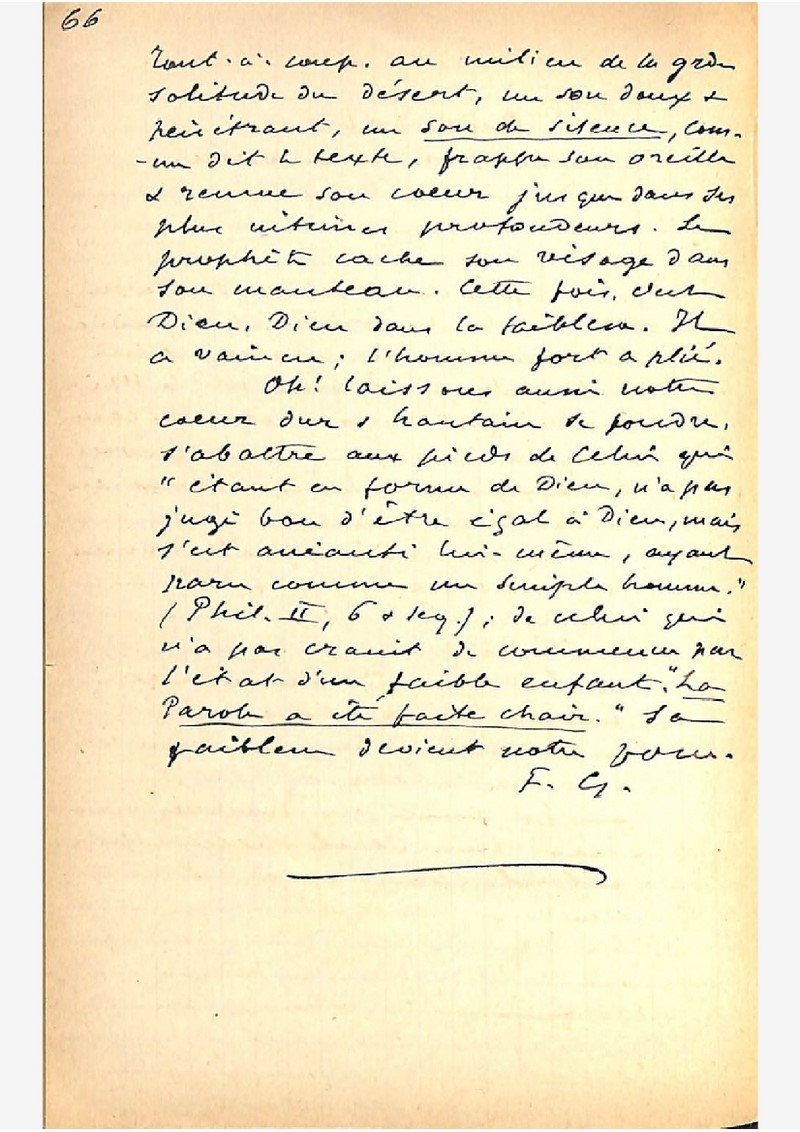 66
Tout-à-coup, au milieu de la grde
solitude du désert, un son doux &
pénétrant, un son de silence, com-
-me dit le texte, frappe son oreille
& remue son coeur jusque dans ses
plus intimes profondeurs. Le
prophète cache son visage dans
son manteau. Cette fois, c'est
Dieu, Dieu dans la faiblesse. Il
a vaincu; l'homme fort a plié.
Oh! laissons aussi notre
coeur dur & hautain se fondre,
s'abattre aux pieds de Celui qui
"étant en forme de Dieu, n'a pas
jugé bon d'être égal à Dieu, mais
s'est anéanti lui-même, ayant
paru comme un simple homme."
(Phil. II, 6 & seq.); de celui qui
n'a pas craint de commencer par
l'état d'un faible enfant. "La
Parole a été faite chair." Sa
faiblesse devient notre force.
F. G.